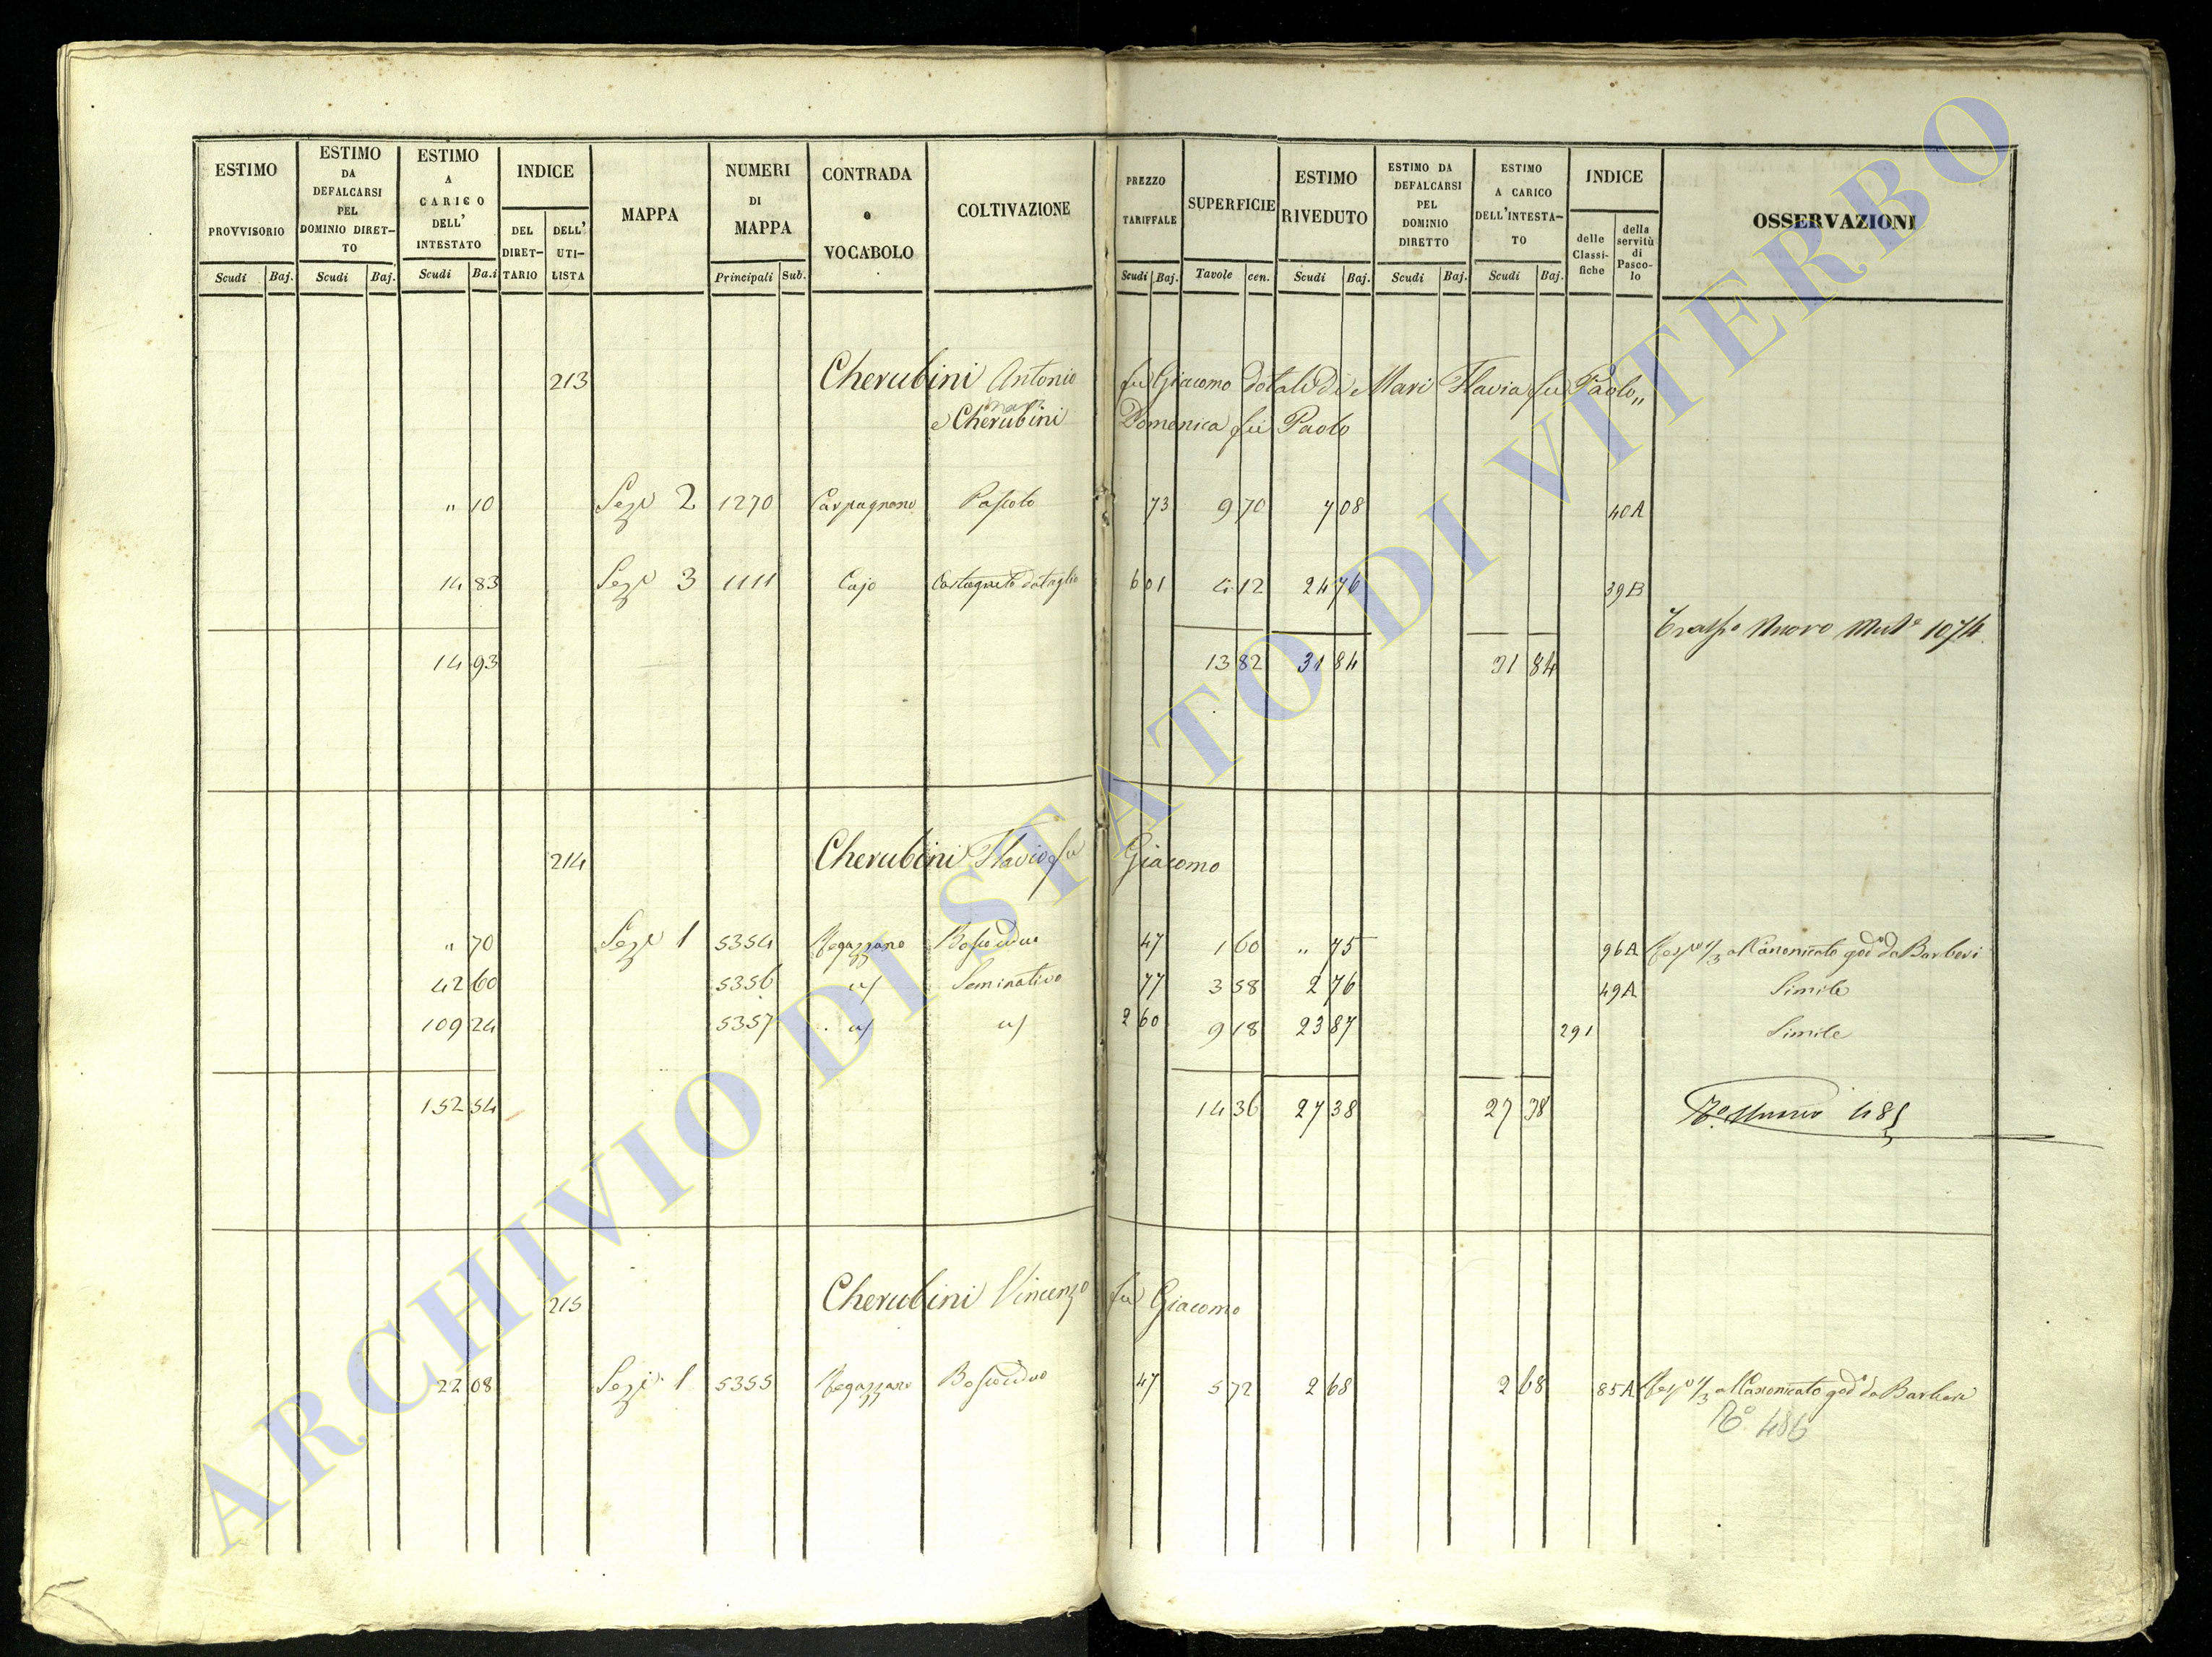 ESTIMO PROVVISORIO Scudi Baj.
ESTIMO DA DEFALCARSI PEL DOMINIO DIRET-TO Scudi Baj.
ESTIMO A CARICO DELL' INTESTATO Scudi Ba.i
INDICE DEL DIRET-TARIO DELL' UTI-LISTA
MAPPA
NUMERI DI MAPPA Principali Sub.
CONTRADA e VOCABOLO
COLTIVAZIONE
PREZZO TARIFFALE Scudi Baj.
SUPERFICIE Tavole cen.
ESTIMO RIVEDUTO Scudi Baj.
ESTIMO DA DEFALCARSI PEL DOMINIO DIRETTO Scudi Baj.
ESTIMO A CARICO DELL'INTESTA-TO Scudi Baj.
INDICE delle Classi-fiche della servitù di Pasco-lo
OSSERVAZIONI
213 Cherubini Antonio fu Giacomo dotale di Mari Flavia fu Paolo „
e Cherubini Domenica fu Paolo
„ 10 Sez.e 2 1270 Carpagnano Pascolo 73 9 70 7 08 40A
14 83 Sez.e 3 1111 Cajo Castagneto da taglio 6 01 4 12 24 76 39B
Trasp.o Nuovo Mut.e 1074
14 93 13 82 31 84 31 84
214 Cherubini Flavio fu Giacomo
„ 70 Sez.e 1 5354 Regazzano Bosceduo 47 1 60 „ 75 96A Resp.e 1/3 al Canonicato god.o da Barberi
42 60 5356 Seminativo 77 3 58 2 76 49A Simile
109 24 5357 2 60 9 18 23 87 291 Simile
152 54 14 36 27 38 27 38 485
215 Cherubini Vincenzo fu Giacomo
22 08 Sez.e 1 5355 Regazzano Bosceduo 47 5 72 2 68 2 68 85A Resp.e 1/3 al Canonicato god.o da Barberi
R.o 486
ARCHIVIO DI STATO DI VITERBO